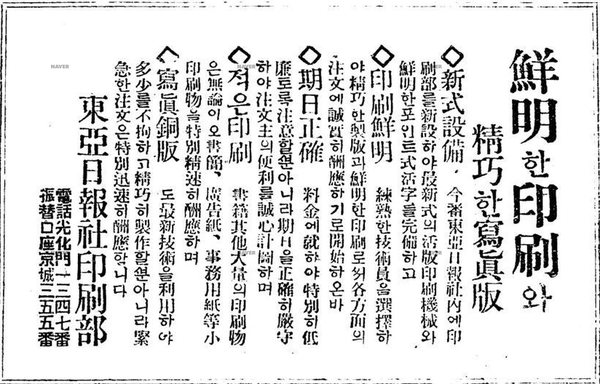 鮮明한印刷와
精巧한寫眞版
◇新式設備 今番東亞日報社內에印
刷部를新設하야最新式의活版印刷機械와
鮮明한포인트式活字를完備하고
◇印刷鮮明 練熟한技術員을選擇하
야精巧한製版과鮮明한印刷로써各方面의
注文에誠實히酬應하기로開始하온바
◇期日正確 料金에就하야特別히低
廉토록注意할뿐아니라期日을正確히嚴守
하야注文主의便利를誠心計圖하며
◇적은印刷 書籍其他大量의印刷物
은無論이오書簡、廣告紙、事務用紙等小
印刷物을特別精速히酬應하며
◇寫眞銅版 도最新技術을利用하야
多少를不拘하고精巧히製作할뿐아니라緊
急한注文은特別迅速히酬應합니다
東亞日報社印刷部
電話光化門一三四七番
振替口座京城二三五五番
NAVER
NAVER
NAVER
NAVER
NAVER
NAVER